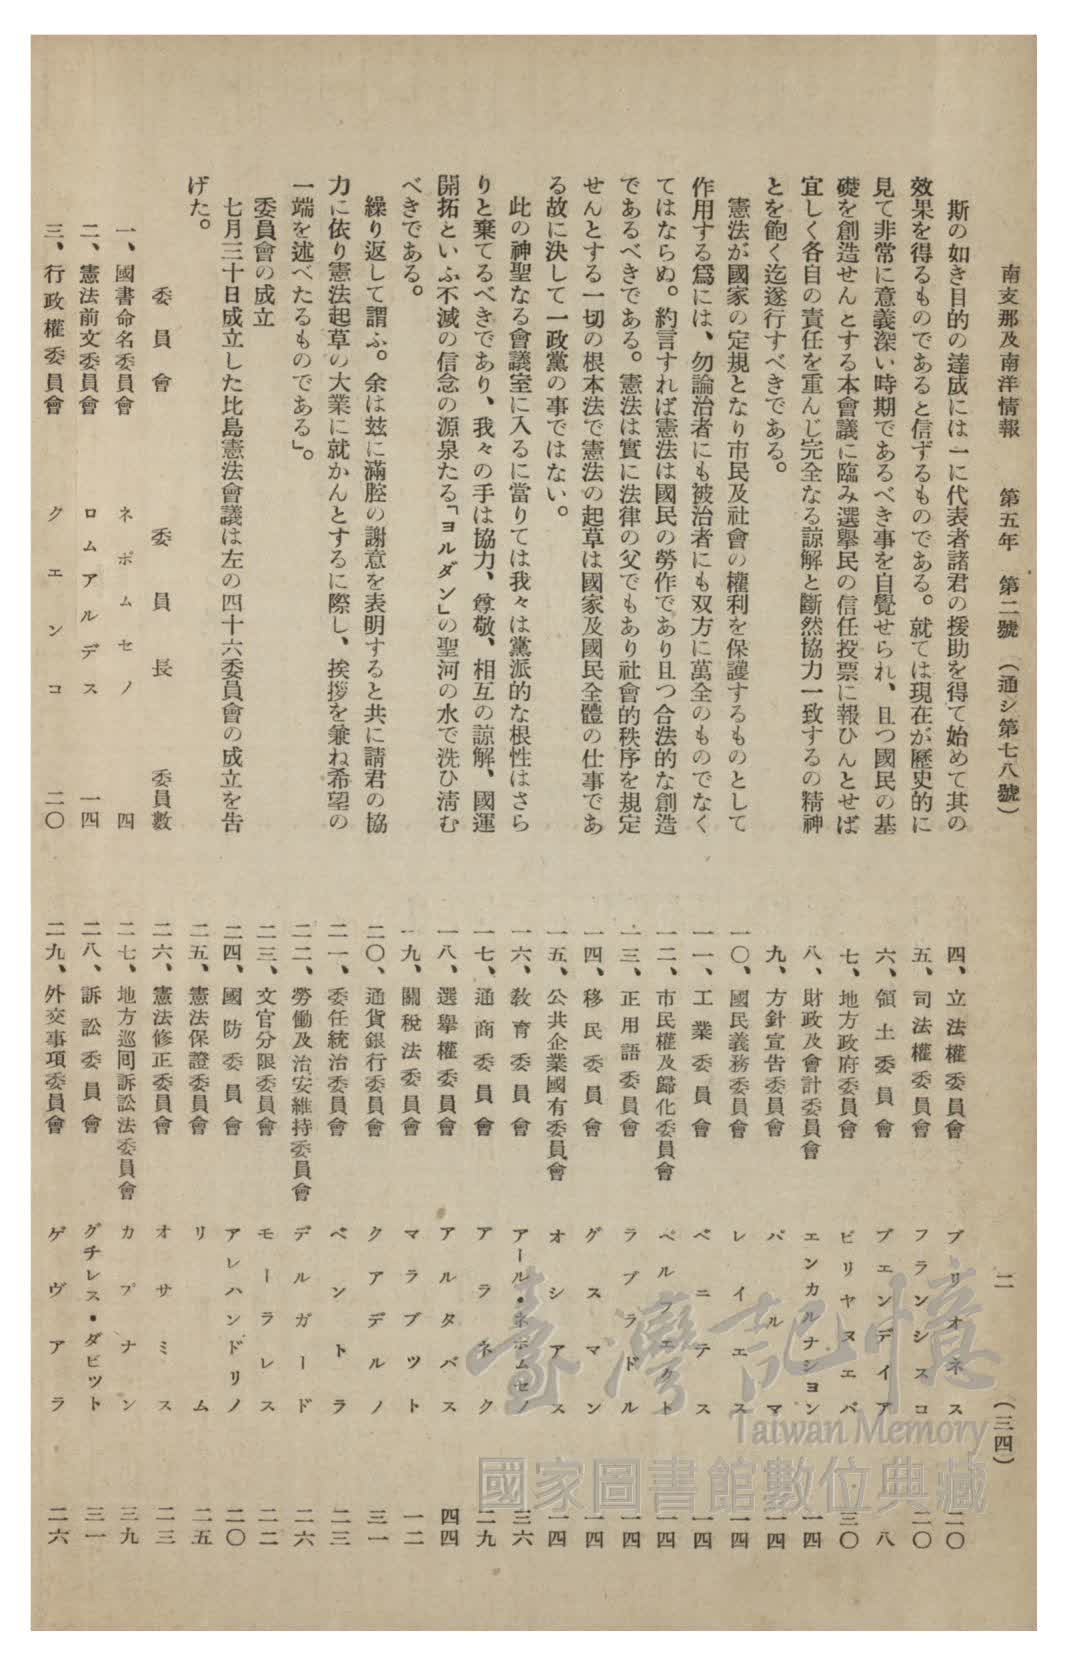 南支那及南洋情報　第五年　第二號　（通シ第七八號）　二　（三四）
斯の如き目的の達成には一に代表者諸君の援助を得て始めて其の
效果を得るものであると信ずるものである。就ては現在が歷史的に
見て非常に意義深い時期であるべき事を自覺せられ、且つ國民の基
礎を創造せんとする本會議に臨み選擧民の信任投票に報ひんとせば
宜しく各自の責任を重んじ完全なる諒解と斷然協力一致するの精神
とを飽く迄遂行すべきである。
憲法が國家の定規となり市民及社會の權利を保護するものとして
作用する爲には、勿論治者にも被治者にも双方に萬全のものでなく
てはならぬ。約言すれば憲法は國民の勞作であり且つ合法的な創造
であるべきである。憲法は實に法律の父でもあり社會的秩序を規定
せんとする一切の根本法で憲法の起草は國家及國民全體の仕事であ
る故に決して一政黨の事ではない。
此の神聖なる會議室に入るに當りては我々は黨派的な根性はさら
りと棄てるべきであり、我々の手は協力、尊敬、相互の諒解、國運
開拓といふ不滅の信念の源泉たる「ヨルダン」の聖河の水で洗ひ淸む
べきである。
繰り返して謂ふ。余は玆に滿腔の謝意を表明すると共に請君の協
力に依り憲法起草の大業に就かんとするに際し、挨拶を兼ね希望の
一端を述べたるものである」。
委員會の成立
七月三十日成立した比島憲法會議は左の四十六委員會の成立を告
げた。
委員會　委員長　委員數
一、國書命名委員會　ネポムセノ　四
二、憲法前文委員會　ロムアルデス　一四
三、行政權委員會　クエンコ　二〇
四、立法權委員會　ブリオネス　二〇
五、司法權委員會　フランシスコ　二〇
六、領土委員會　ブエンデイア　八
七、地方政府委員會　ビリヤヌエバ　三〇
八、財政及會計委員會　エンカルナシヨン　一四
九、方針宣告委員會　パルマ　一四
一〇、國民義務委員會　レイエス　一四
一一、工業委員會　ベニテス　一四
一二、市民權及歸化委員會　ペルフエクト　一四
一三、正用語委員會　ラブラドル　一四
一四、移民委員會　グスマン　一四
一五、公共企業國有委員會　オシアス　一四
一六、敎育委員會　アール・ネポムセノ　三六
一七、通商委員會　アラネク　二九
一八、選擧權委員會　アルタバス　四四
一九、關稅法委員會　マラブツト　一二
二〇、通貨銀行委員會　クアデルノ　三一
二一、委任統治委員會　ベントラ　二三
二二、勞働及治安維持委員會　デルガード　二六
二三、文官分限委員會　モーラレス　二二
二四、國防委員會　アレハンドリノ　二〇
二五、憲法保證委員會　リム　二五
二六、憲法修正委員會　オサミス　二三
二七、地方巡囘訴訟法委員會　カプナン　三九
二八、訴訟委員會　グチレス・ダビツト　三一
二九、外交事項委員會　ゲヴアラ　二六
臺灣記憶
Taiwan Memory
國家圖書館數位典藏